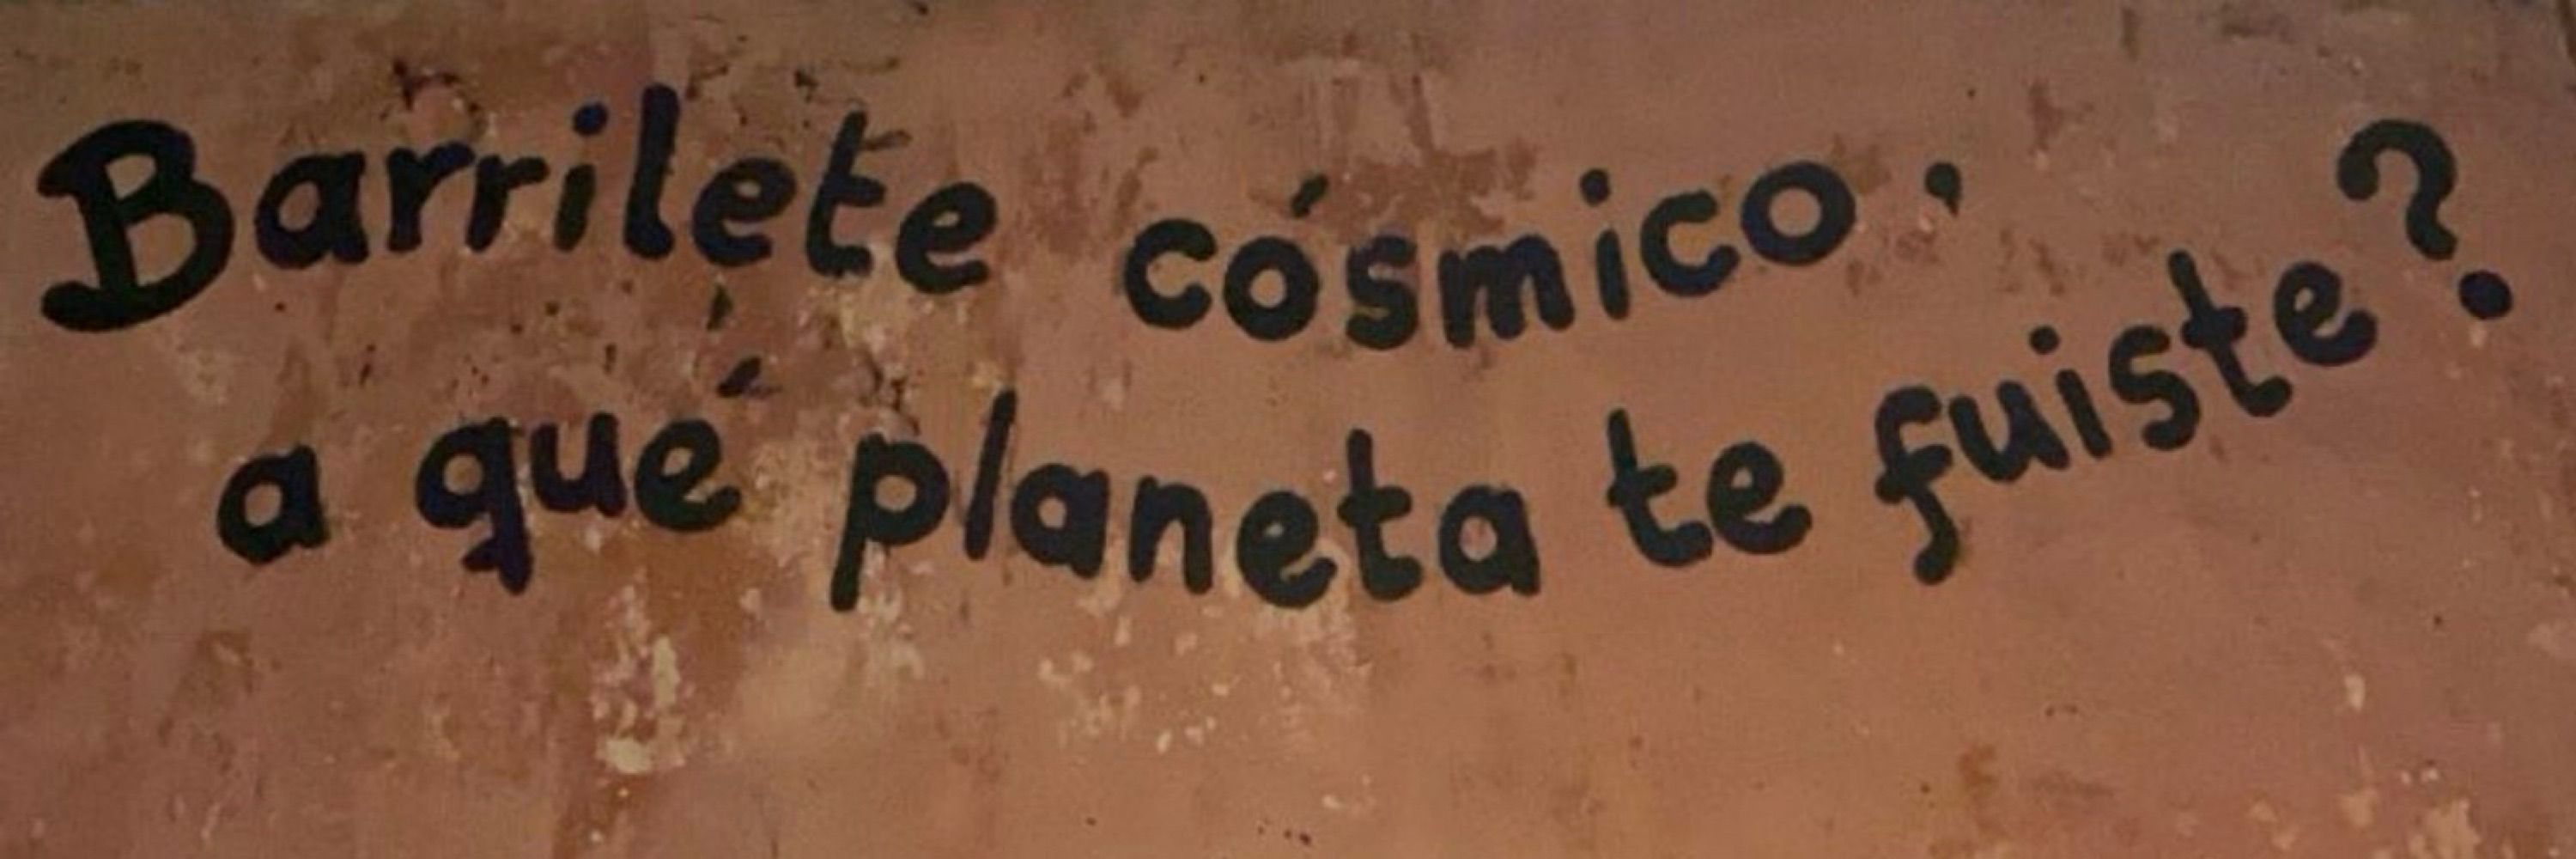 Barrilete cósmico,
a qué planeta te fuiste?